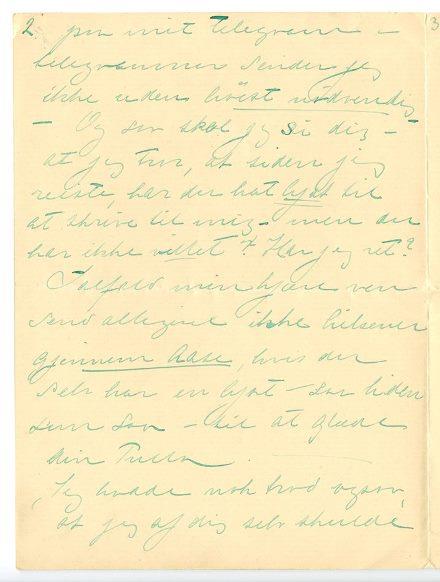 2. paa mit telegram –
telegrammer sender jeg
ikke uden høist nødvendig
– Og saa skal jeg si dig –
at jeg tror, at siden jeg
reiste, har du hat lyst til
at skrive til mig – men du
har ikke villet? Har jeg ret?
Ialfald min kjære ven
send alligevel ikke hilsener
gjennem Aase, hvis du
selv har en lyst – saa liden
som saa – til at glæde
din Tulla.
Jeg hadde nok trod ogsaa,
at jeg af dig selv skulde
3